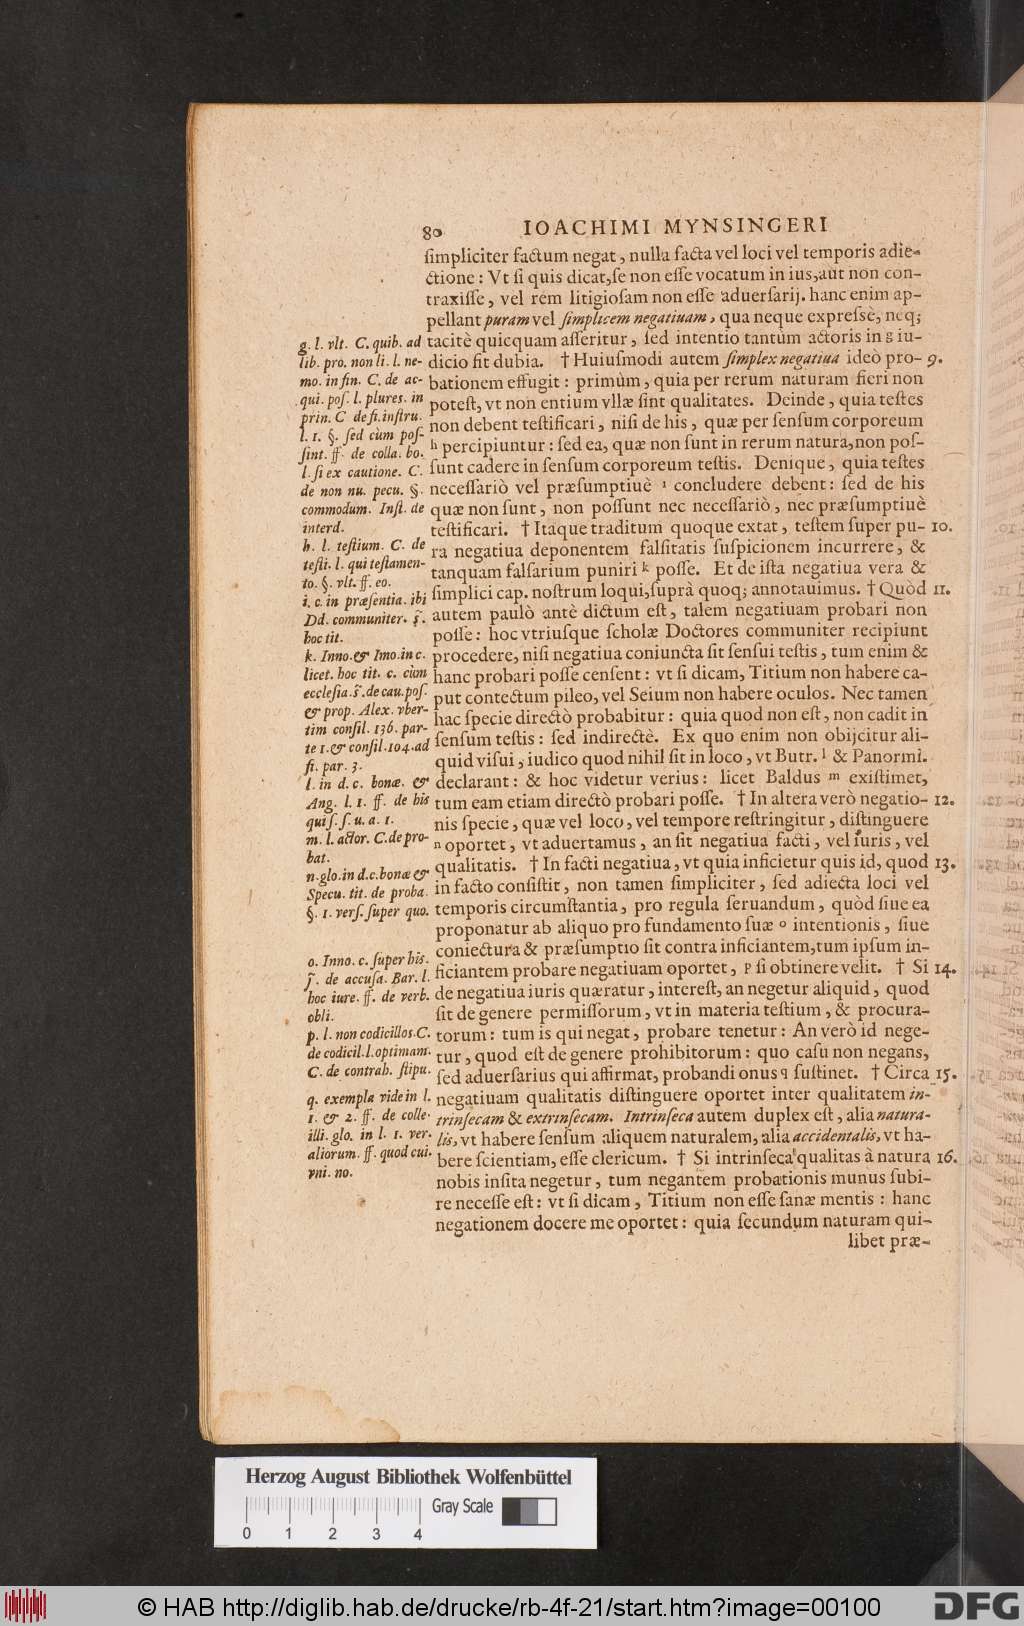 80 IOACHIMI MYNSINGERI
ſimpliciter factum negat, nulla facta vel loci vel temporis adie-
ctione: Vt ſi quis dicat, ſe non eſſe vocatum in ius, aut non con-
traxiſſe, vel rem litigioſam non eſſe aduerſarij. hanc enim ap-
pellant puram vel ſimplicem negatiuam, qua neque expreſsè, neq;
tacitè quicquam aſſeritur, ſed intentio tantùm actoris in g iu-
dicio fit dubia. † Huiuſmodi autem ſimplex negatiua ideò pro- 9.
bationem effugit: primùm, quia per rerum naturam fieri non
poteſt, vt non entium vllæ ſint qualitates. Deinde, quia teſtes
non debent teſtificari, niſi de his, quæ per ſenſum corporeum
h percipiuntur: ſed ea, quæ non ſunt in rerum natura, non poſ-
ſunt cadere in ſenſum corporeum teſtis. Denique, quia teſtes
neceſſariò vel præſumptiuè i concludere debent: ſed de his
quæ non ſunt, non poſſunt nec neceſſariò, nec præſumptiuè
teſtificari. † Itaque traditum quoque extat, teſtem ſuper pu- 10.
ra negatiua deponentem falſitatis ſuſpicionem incurrere, &
tanquam falſarium puniri k poſſe. Et de iſta negatiua vera &
ſimplici cap. noſtrum loqui, ſuprà quoq; annotauimus. † Quòd 11.
autem paulò antè dictum eſt, talem negatiuam probari non
poſſe: hoc vtriuſque ſcholæ Doctores communiter recipiunt
procedere, niſi negatiua coniuncta ſit ſenſui teſtis, tum enim &
hanc probari poſſe cenſent: vt ſi dicam, Titium non habere ca-
put contectum pileo, vel Seium non habere oculos. Nec tamen
hac ſpecie directò probabitur: quia quod non eſt, non cadit in
ſenſum teſtis: ſed indirectè. Ex quo enim non obijcitur ali-
quid viſui, iudico quod nihil ſit in loco, vt Butr. l & Panormi.
declarant: & hoc videtur verius: licet Baldus m exiſtimet,
tum eam etiam directò probari poſſe. † In altera verò negatio- 12.
nis ſpecie, quæ vel loco, vel tempore reſtringitur, diſtinguere
n oportet, vt aduertamus, an ſit negatiua facti, vel iuris, vel
qualitatis. † In facti negatiua, vt quia inficietur quis id, quod 13.
in facto conſiſtit, non tamen ſimpliciter, ſed adiecta loci vel
temporis circumſtantia, pro regula ſeruandum, quòd ſiue ea
proponatur ab aliquo pro fundamento ſuæ o intentionis, ſiue
coniectura & præſumptio ſit contra inficiantem, tum ipſum in-
ficiantem probare negatiuam oportet, p ſi obtinere velit. † Si 14.
de negatiua iuris quæratur, intereſt, an negetur aliquid, quod
ſit de genere permiſſorum, vt in materia teſtium, & procura-
torum: tum is qui negat, probare tenetur: An verò id nege-
tur, quod eſt de genere prohibitorum: quo caſu non negans,
ſed aduerſarius qui affirmat, probandi onus q ſuſtinet. † Circa 15.
negatiuam qualitatis diſtinguere oportet inter qualitatem in-
trinſecam & extrinſecam. Intrinſeca autem duplex eſt, alia natura-
lis, vt habere ſenſum aliquem naturalem, alia accidentalis, vt ha-
bere ſcientiam, eſſe clericum. † Si intrinſeca qualitas à natura 16.
nobis inſita negetur, tum negantem probationis munus ſubi-
re neceſſe eſt: vt ſi dicam, Titium non eſſe ſanæ mentis: hanc
negationem docere me oportet: quia ſecundum naturam qui-
libet præ-
g. l. vlt. C. quib. ad
lib. pro. non li. l. ne-
mo. in fin. C. de ac-
qui. poſ. l. plures. in
prin. C de fi. inſtru.
l. 1. §. ſed cùm poſ-
ſint. ff. de colla. bo.
l. ſi ex cautione. C.
de non nu. pecu. §.
commodum. Inſt. de
interd.
h. l. teſtium. C. de
teſti. l. qui teſtamen-
to. §. vlt. ff. eo.
i. c. in præſentia. ibi
Dd. communiter. ſ.
hoc tit.
k. Inno. & Imo. in c.
licet. hoc tit. c. cùm
eccleſia. ſ. de cau. poſ.
& prop. Alex. vber-
tim conſil. 136. par-
te 1. & conſil. 104. ad
fi. par. 3.
l. in d. c. bonæ. &
Ang. l. 1. ff. de his
qui ſ. ſ. u. a. 1.
m. l. actor. C. de pro-
bat.
n. glo. in d. c. bonæ &
Specu. tit. de proba.
§. 1. verſ. ſuper quo.
o. Inno. c. ſuper his.
ſ. de accuſa. Bar. l.
hoc iure. ff. de verb.
obli.
p. l. non codicillos. C.
de codicil. l. optimam.
C. de contrah. ſtipu.
q. exempla vide in l.
1. & 2. ff. de colle.
illi. glo. in l. 1. ver.
aliorum. ff. quod cui.
vni. no.
Herzog August Bibliothek Wolfenbüttel
Gray Scale
0 1 2 3 4
© HAB http://diglib.hab.de/drucke/rb-4f-21/start.htm?image=00100
DFG